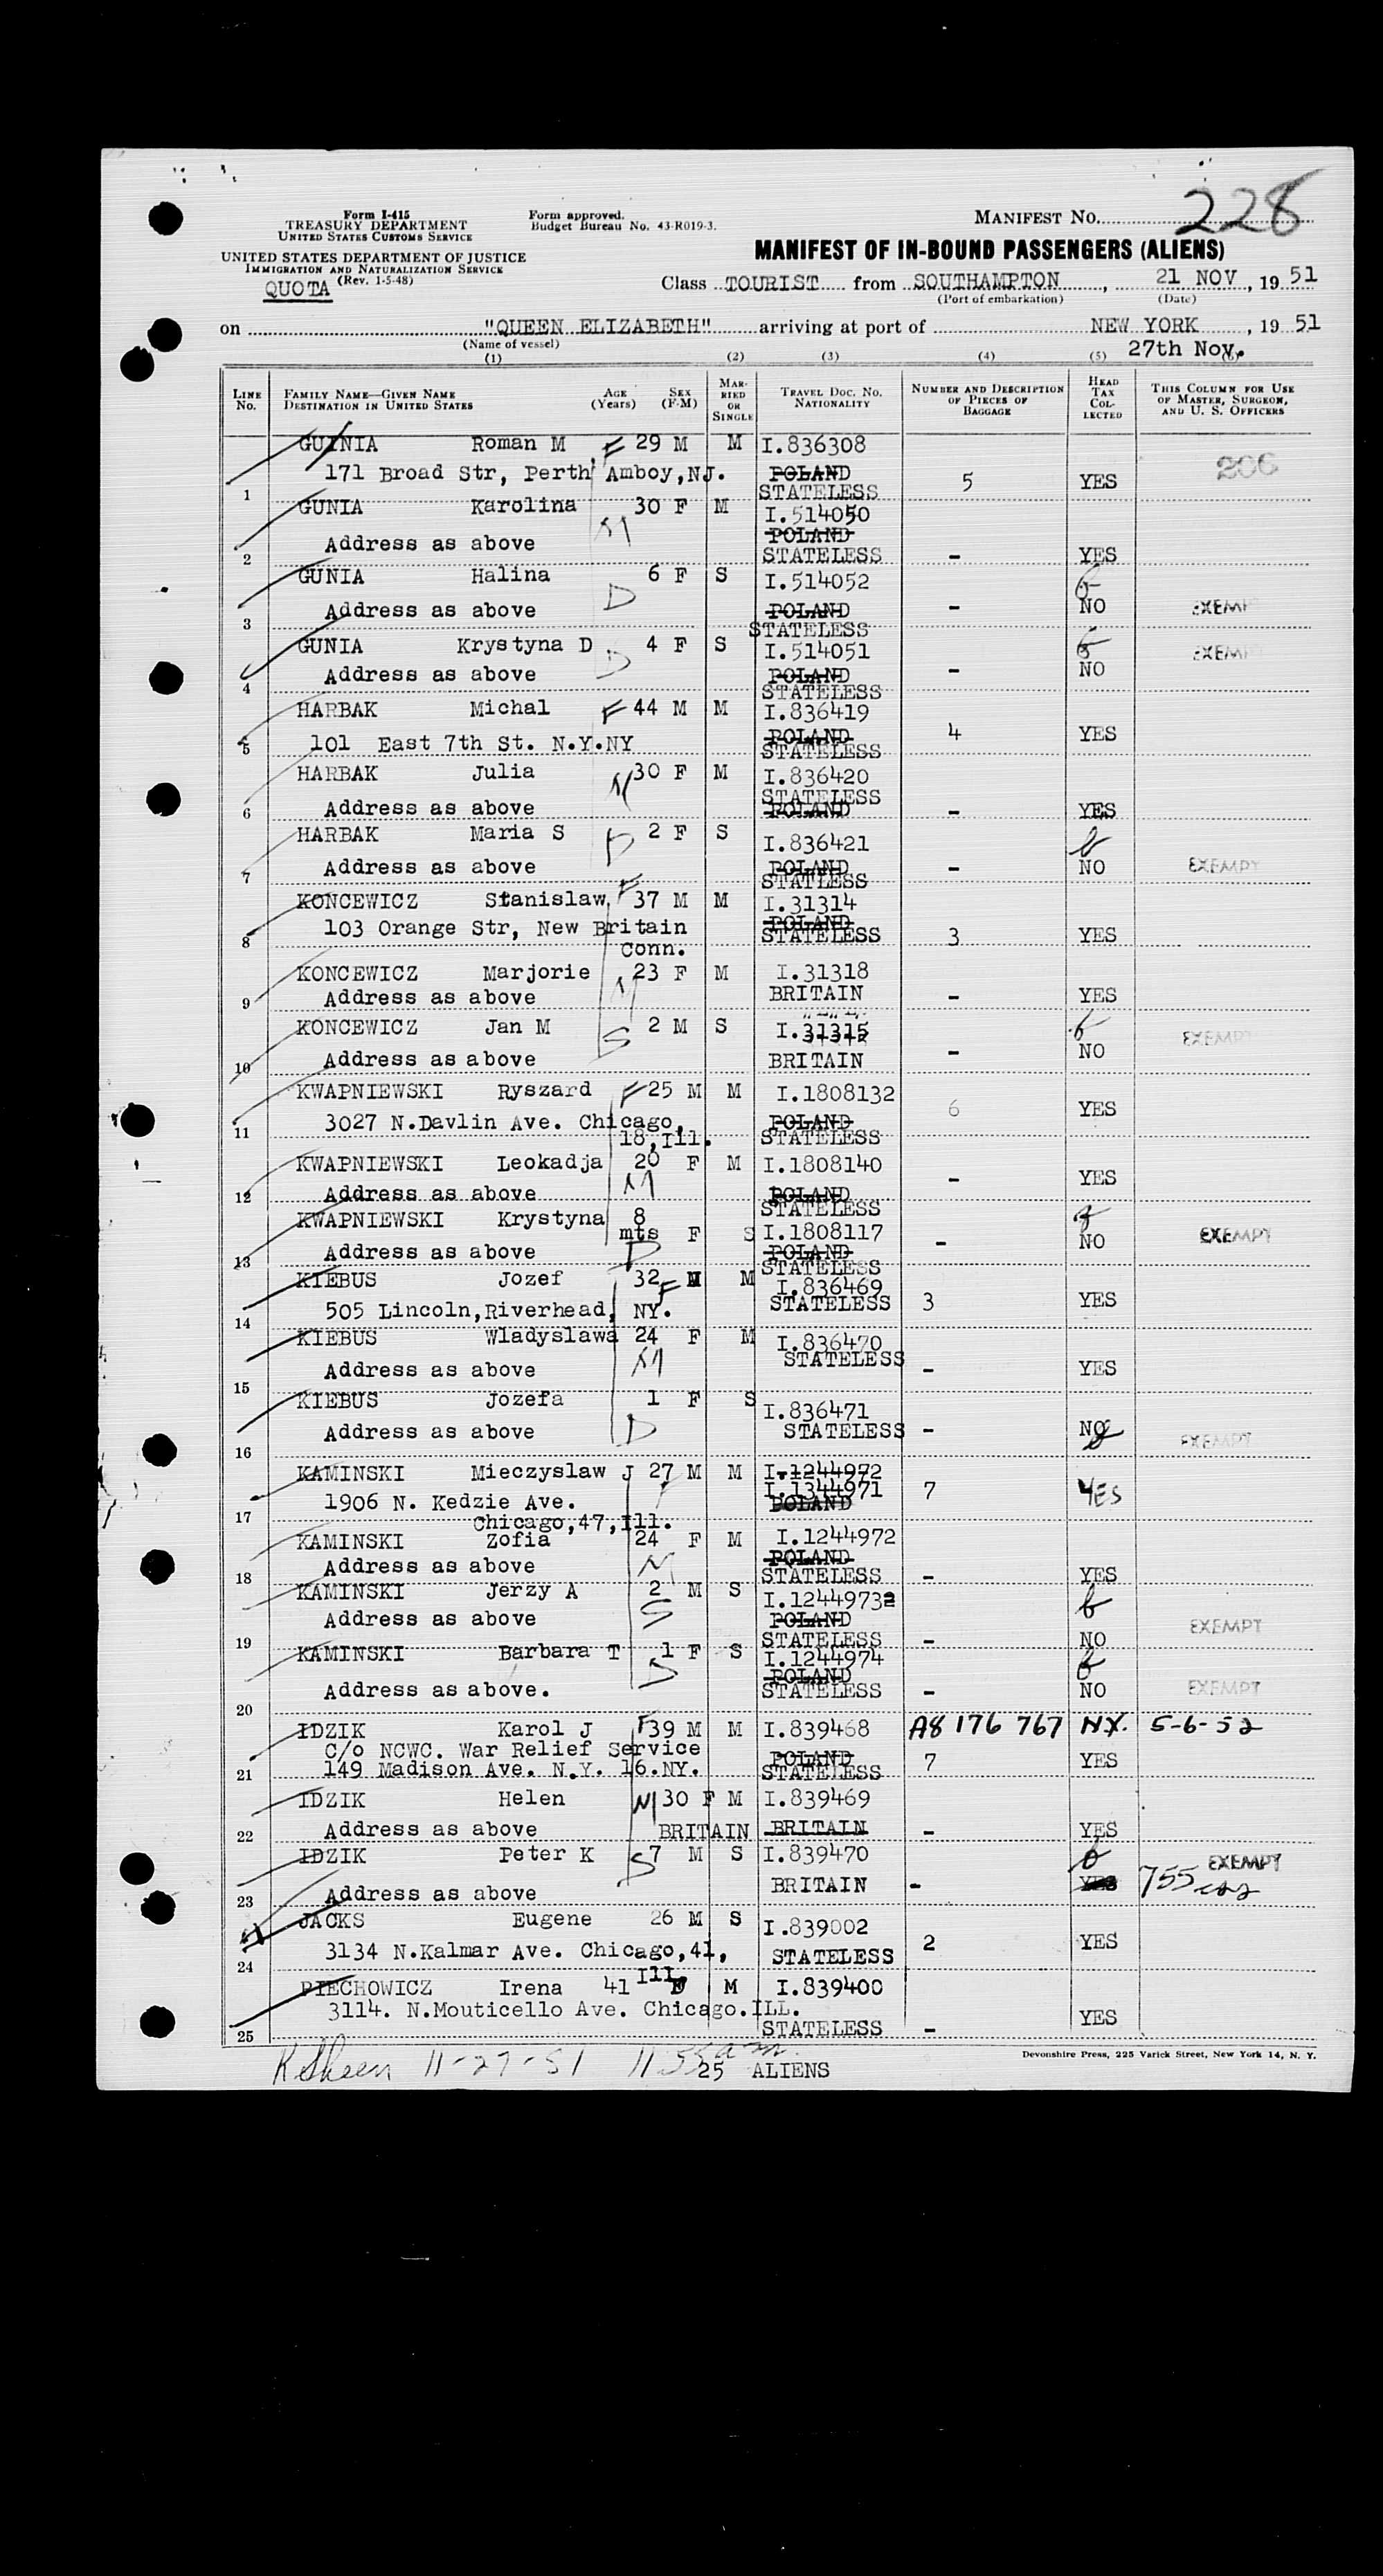 228
Form I-415
TREASURY DEPARTMENT
UNITED STATES CUSTOMS SERVICE
UNITED STATES DEPARTMENT OF JUSTICE
IMMIGRATION AND NATURALIZATION SERVICE
(Rev. 1-5-48)
QUOTA
Form approved.
Budget Bureau No. 43-R019-3.
MANIFEST NO.
MANIFEST OF IN-BOUND PASSENGERS (ALIENS)
Class TOURIST from SOUTHAMPTON, 21 NOV, 19 51
(Port of embarkation) (Date)
on "QUEEN ELIZABETH" arriving at port of NEW YORK, 19 51
(Name of vessel) 27th Nov.
(1) (2) (3) (4) (5) (6)
LINE NO. FAMILY NAME—GIVEN NAME DESTINATION IN UNITED STATES AGE (Years) SEX (F-M) MARRIED OR SINGLE TRAVEL DOC. NO. NATIONALITY NUMBER AND DESCRIPTION OF PIECES OF BAGGAGE HEAD TAX COLLECTED THIS COLUMN FOR USE OF MASTER, SURGEON, AND U. S. OFFICERS
GUINIA Roman M F 29 M M I.836308 206
171 Broad Str, Perth Amboy, NJ. POLAND 5 YES
1 STATELESS
GUNIA Karolina 30 F M I.514050
M POLAND
2 Address as above STATELESS - YES
GUNIA Halina 6 F S I.514052
D
3 Address as above POLAND - NO EXEMP
STATELESS
GUNIA Krystyna D 4 F S I.514051 EXEMP
D
4 Address as above POLAND - NO
STATELESS
HARBAK Michal F 44 M M I.836419
5 101 East 7th St. N.Y.NY POLAND 4 YES
STATELESS
HARBAK Julia M 30 F M I.836420
STATELESS
6 Address as above POLAND - YES
HARBAK Maria S D 2 F S I.836421
7 Address as above POLAND - NO EXEMPT
STATLESS
KONCEWICZ Stanislaw F 37 M M I.31314
103 Orange Str, New Britain POLAND
8 Conn. STATELESS 3 YES
KONCEWICZ Marjorie M 23 F M I.31318
9 Address as above BRITAIN - YES
KONCEWICZ Jan M S 2 M S I.31315 EXEMP
10 Address as above BRITAIN - NO
KWAPNIEWSKI Ryszard F 25 M M I.1808132
3027 N.Davlin Ave. Chicago, POLAND 6 YES
11 18, Ill. STATELESS
KWAPNIEWSKI Leokadja 20 F M I.1808140
M
12 Address as above POLAND - YES
STATELESS
KWAPNIEWSKI Krystyna 8 mts F S I.1808117
13 Address as above D POLAND - NO EXEMPT
STATELESS
KIEBUS Jozef 32 F M M I.836469
14 505 Lincoln, Riverhead, NY. STATELESS 3 YES
KIEBUS Wladyslawa 24 F M I.836470
M STATELESS
15 Address as above - YES
KIEBUS Jozefa 1 F S I.836471
16 Address as above D STATELESS - NO EXEMPT
KAMINSKI Mieczyslaw J 27 M M I.1244972
I.1344971
1906 N. Kedzie Ave. F POLAND 7 YES
17 Chicago,47,Ill.
KAMINSKI Zofia 24 F M I.1244972
Address as above M POLAND
18 STATELESS - YES
KAMINSKI Jerzy A 2 M S I.12449732
Address as above S POLAND EXEMPT
19 STATELESS - NO
KAMINSKI Barbara T 1 F S I.1244974
D POLAND
20 Address as above. STATELESS - NO EXEMPT
IDZIK Karol J F 39 M M I.839468 A8 176 767 N.Y. 5-6-52
C/o NCWC. War Relief Service POLAND 7 YES
21 149 Madison Ave. N.Y. 16.NY. STATELESS
IDZIK Helen M 30 F M I.839469
22 Address as above BRITAIN BRITAIN - YES
IDZIK Peter K S 7 M S I.839470 EXEMPT
23 Address as above BRITAIN - YES 755
JACKS Eugene 26 M S I.839002
24 3134 N.Kalmar Ave. Chicago,41, Ill. STATELESS 2 YES
PIECHOWICZ Irena 41 F M I.839400
3114. N.Mouticello Ave. Chicago.ILL. YES
25 STATELESS -
Devonshire Press, 225 Varick Street, New York 14, N. Y.
K Sheen 11-27-51 11 55 a.m.
25 ALIENS